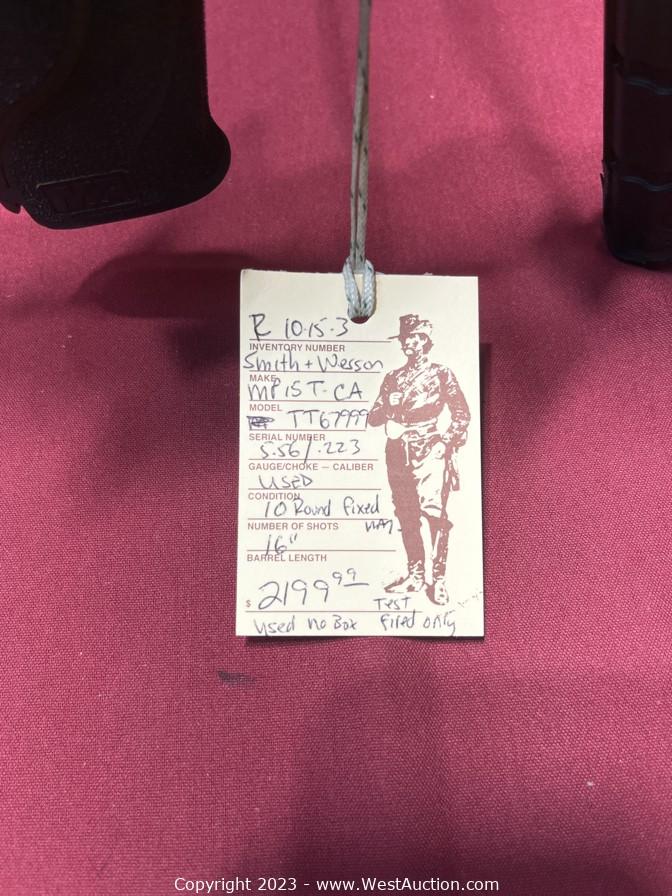 R 10-15-3
INVENTORY NUMBER
Smith + Wesson
MAKE
MP 15 T-CA
MODEL
TT67999
SERIAL NUMBER
5.56/.223
GAUGE/CHOKE — CALIBER
USED
CONDITION
10 Round Fixed
NUMBER OF SHOTS
16"
BARREL LENGTH
$ 2199 99
Test
Used no Box fired only
Copyright 2023 - www.WestAuction.com